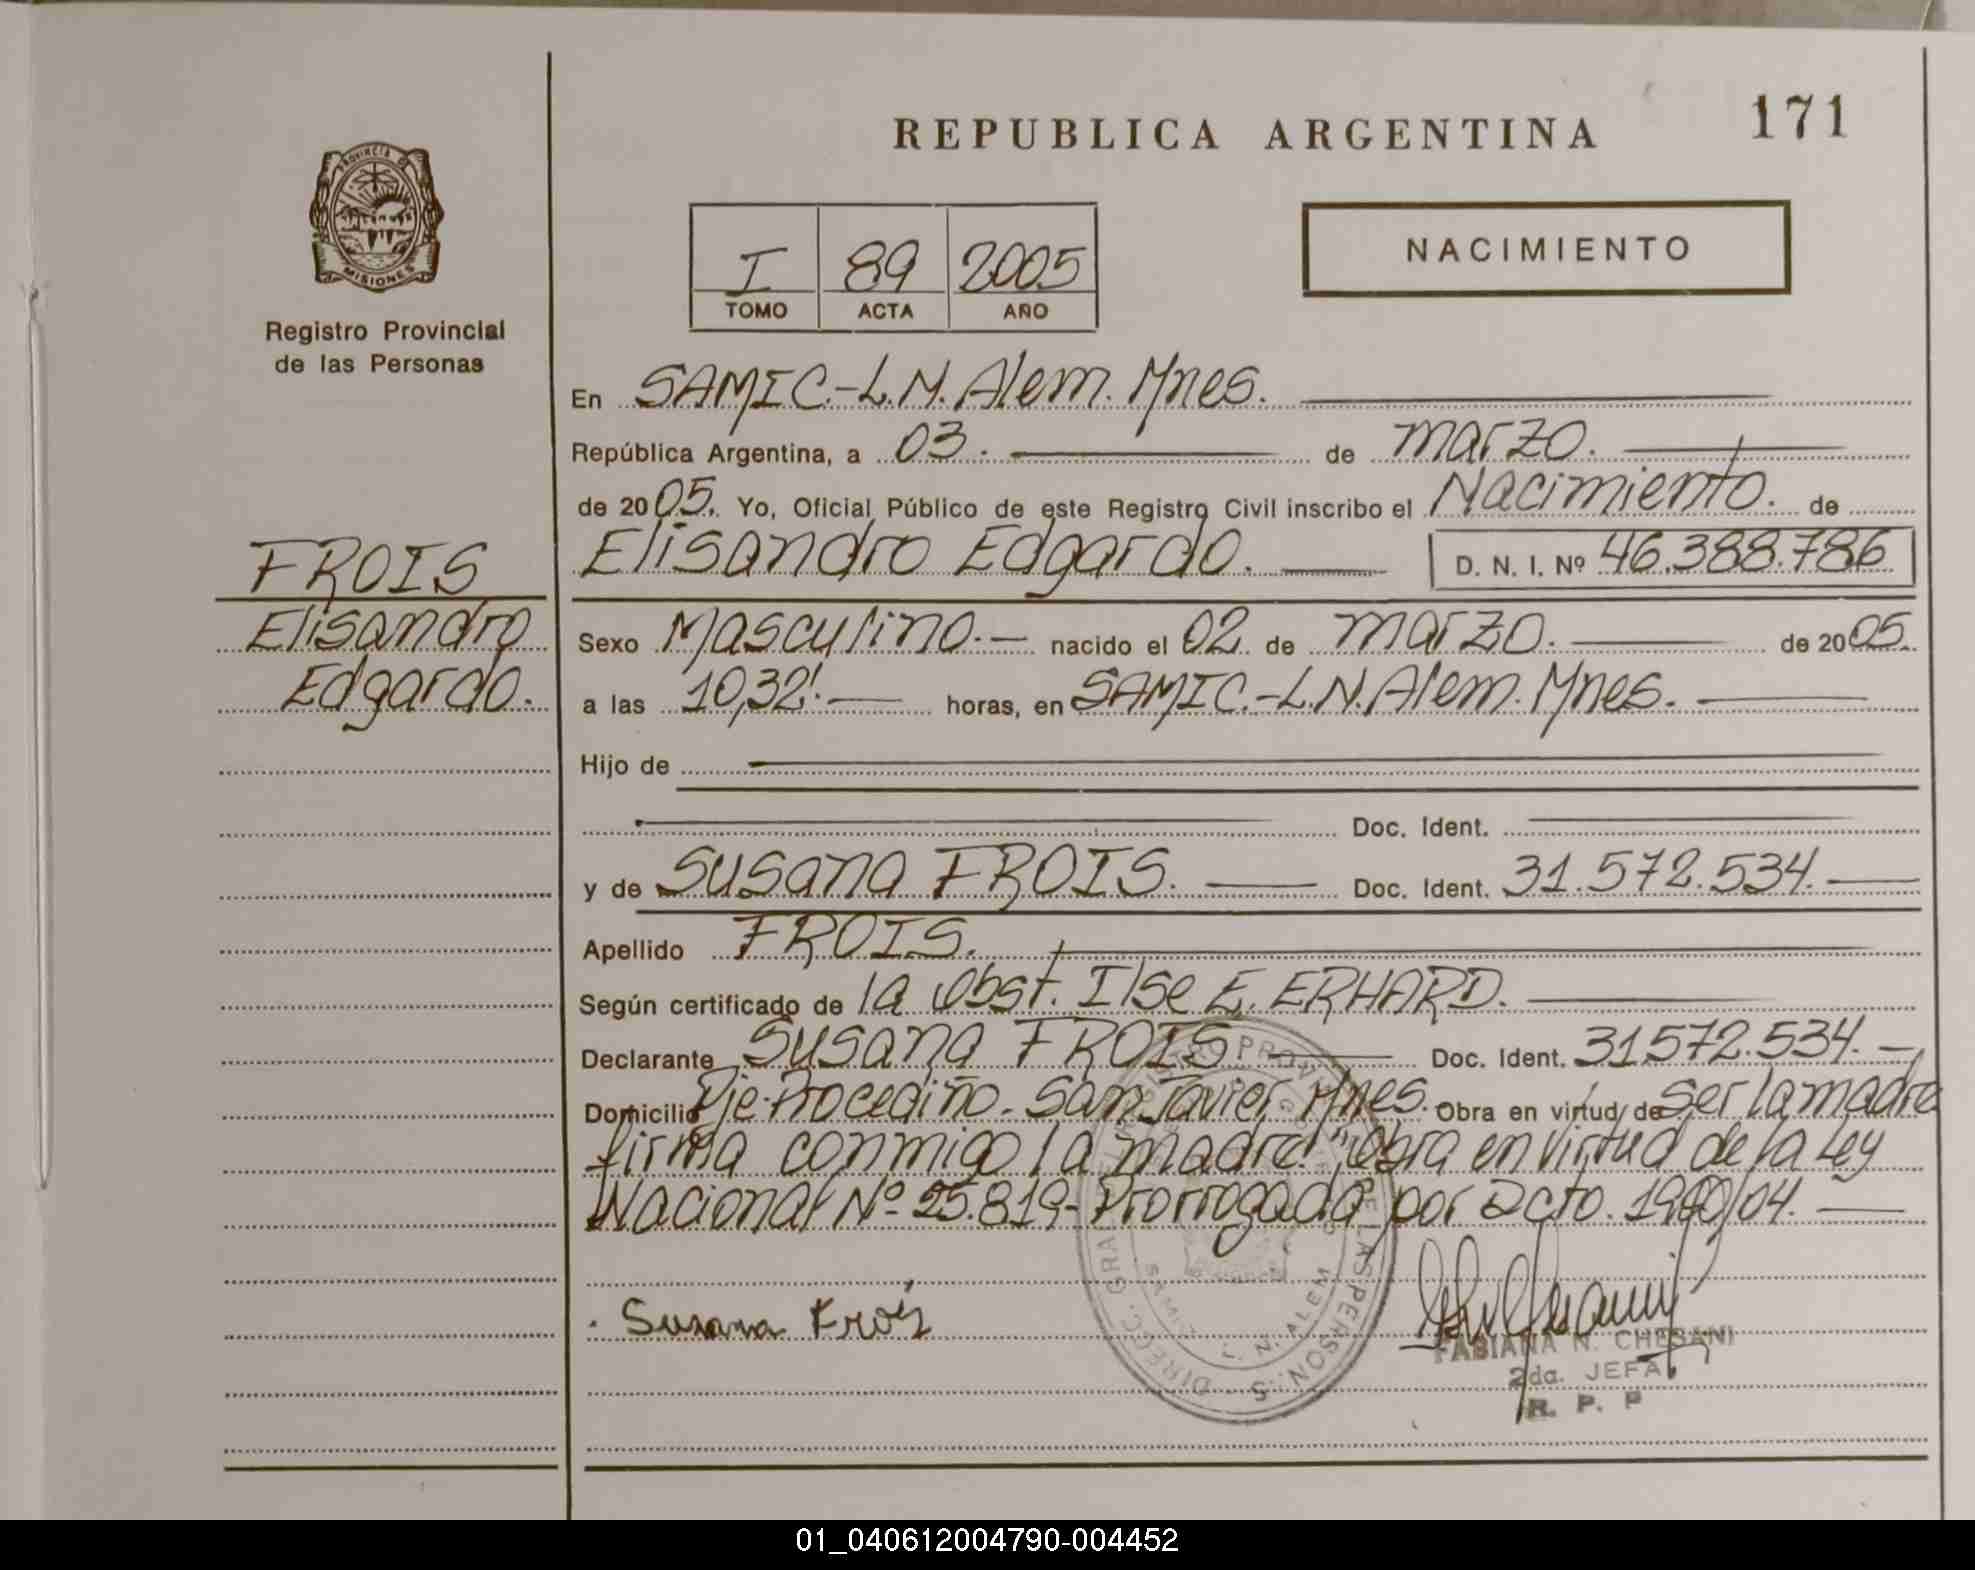 171
REPUBLICA ARGENTINA
PROVINCIA DE
MISIONES
Registro Provincial
de las Personas
I 89 2005
TOMO ACTA AÑO
NACIMIENTO
En SAMIC.-L.N.Alem.Mnes.
República Argentina, a 03. de marzo.
de 2005. Yo, Oficial Público de este Registro Civil inscribo el Nacimiento. de
Elisandro Edgardo. D. N. I. Nº 46.388.786
FROIS
Elisandro
Edgardo.
Sexo Masculino.- nacido el 02 de marzo. de 2005.
a las 10,32'. horas, en SAMIC.-L.N.Alem.Mnes.
Hijo de
Doc. Ident.
y de Susana FROIS. Doc. Ident. 31.572.534.
Apellido FROIS.
Según certificado de la Obst. Ilse E. ERHARD.
Declarante Susana FROIS Doc. Ident. 31572.534.
Domicilio San Javier, Mnes. Obra en virtud de ser la madre
firma conmigo la madre "Obra en virtud de la Ley
Nacional Nº 25.819- Prorrogada por Dcto. /04.
Susana Frois
FABIANA N. CHESANI
2da. JEFA
R. P. P
SAMIC L. N. ALEM
01_040612004790-004452